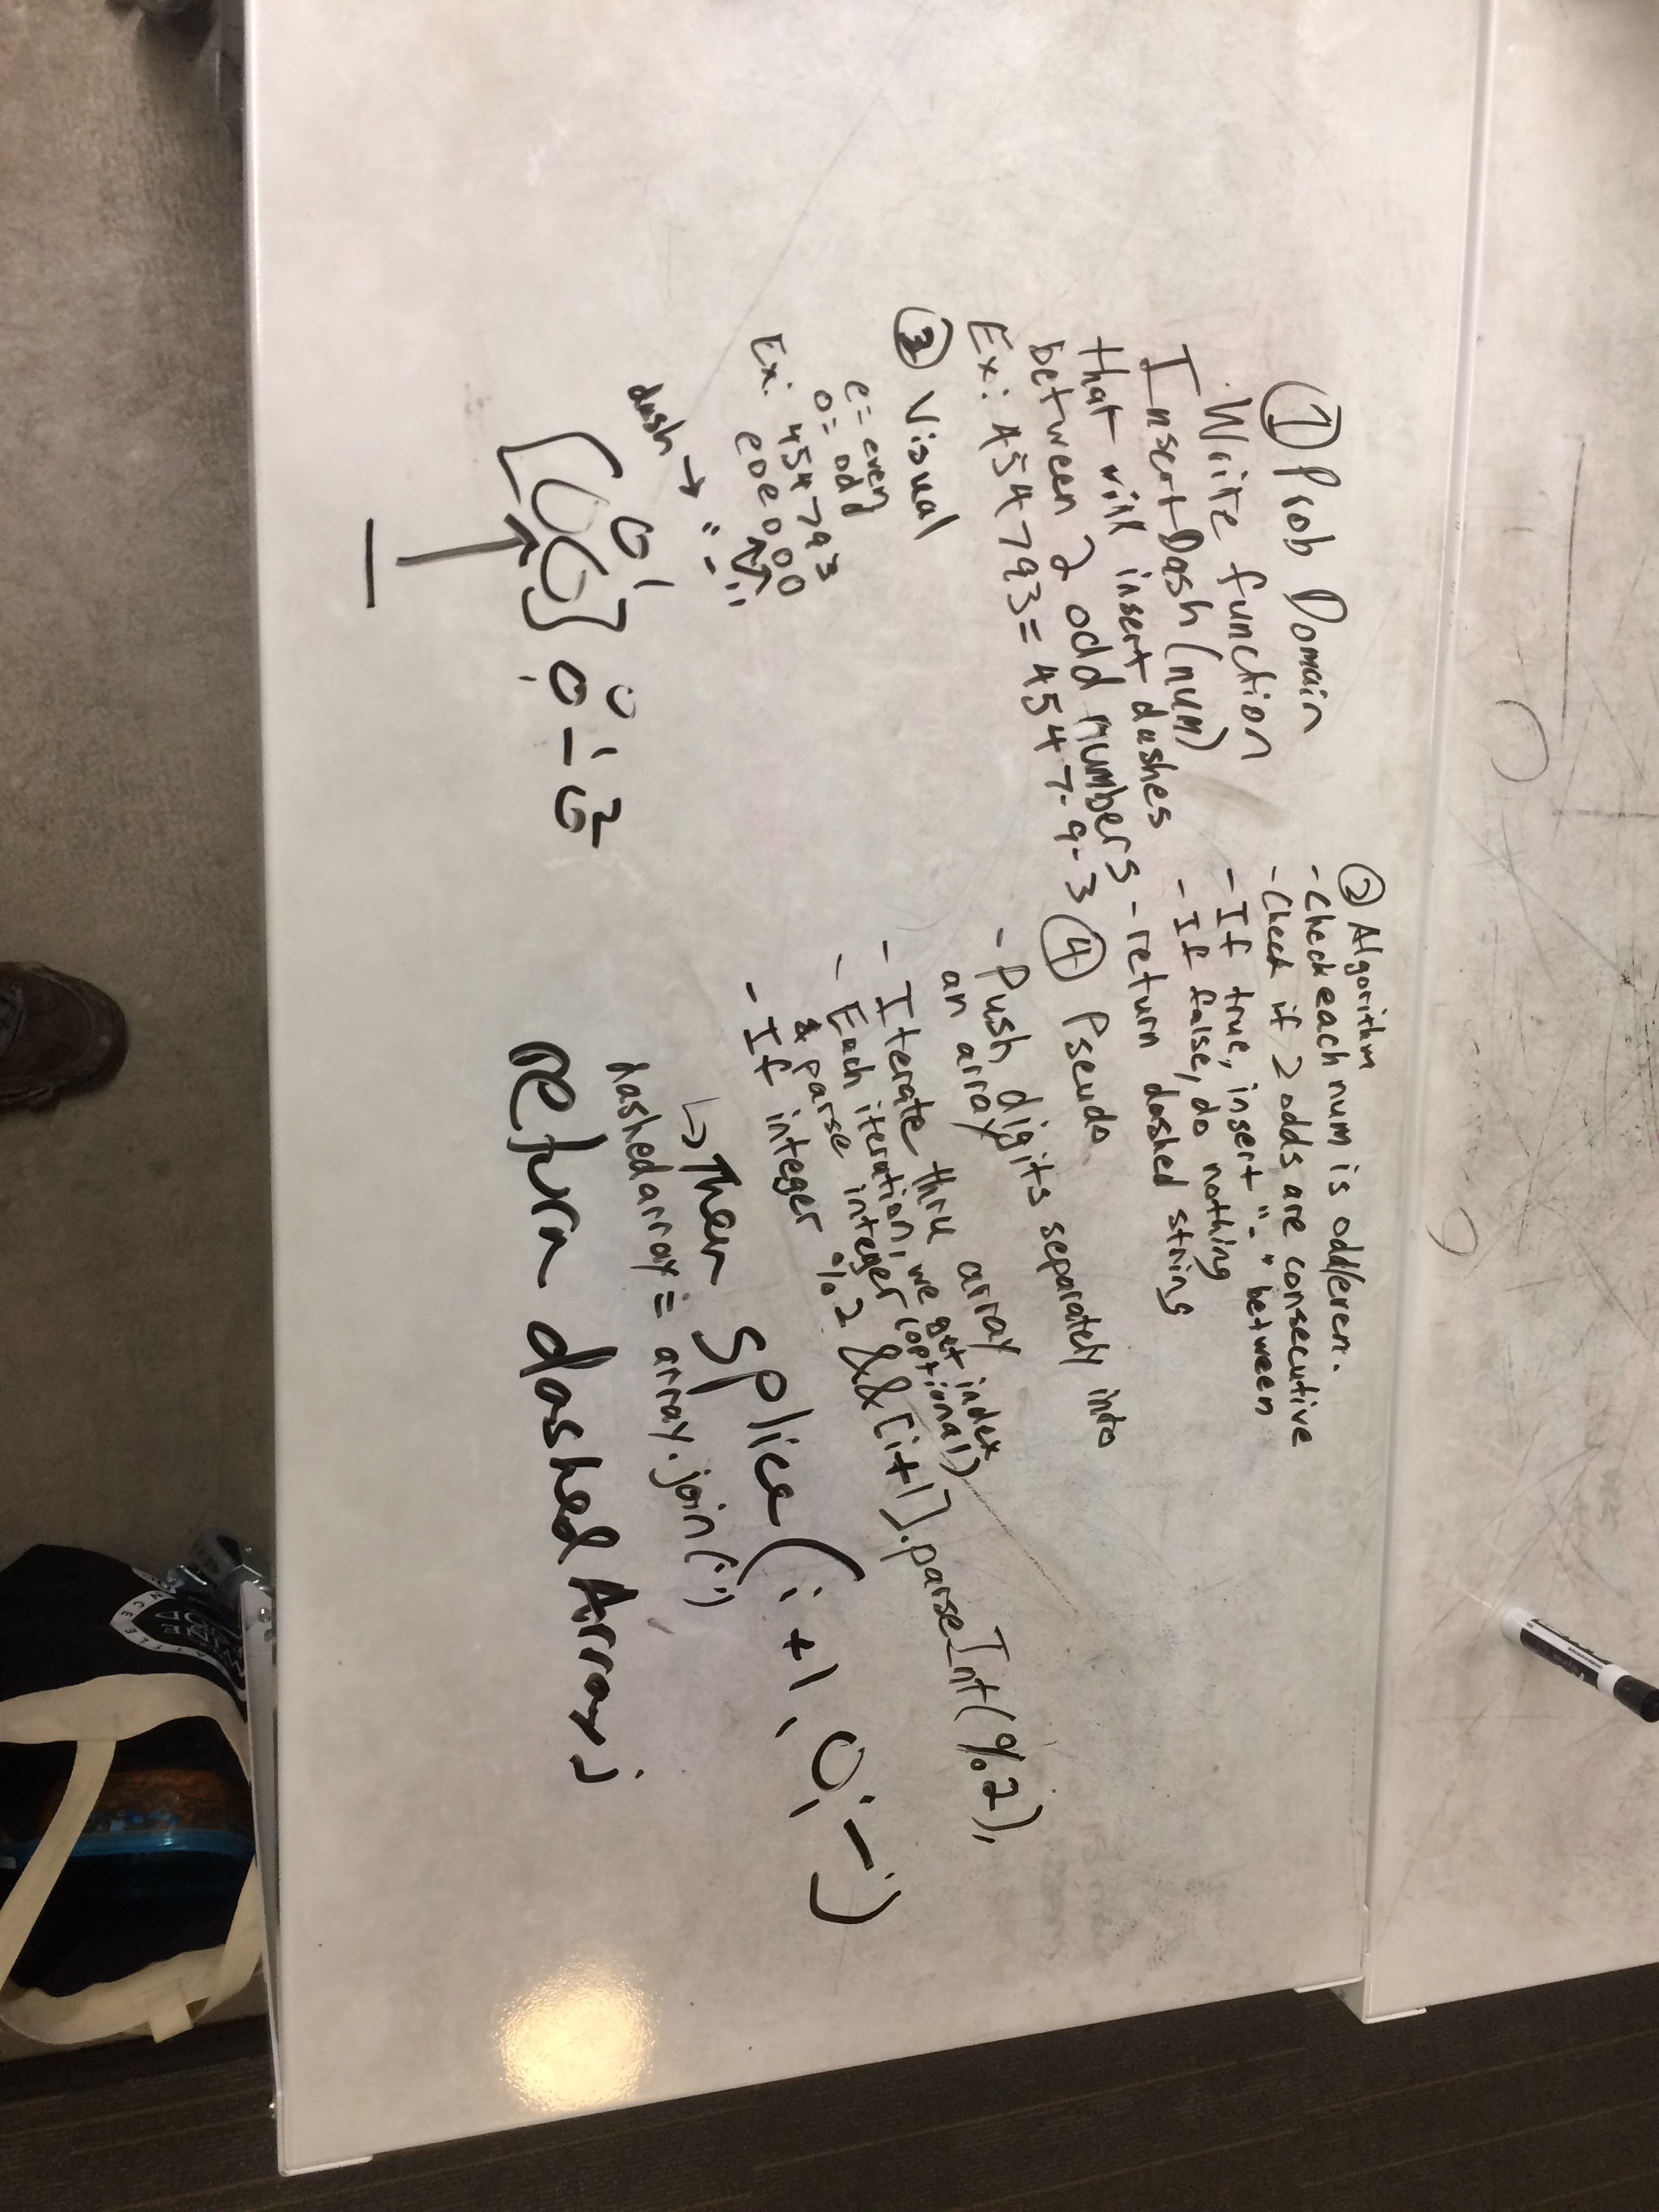 ① Prob Domain
· Write function
InsertDash(num)
that will insert dashes
between 2 odd numbers
Ex: 454793 = 4547-9-3
② Algorithm
- Check each num is odd/even.
- Check if 2 odds are consecutive
- If true, insert "-" between
- If false, do nothing
- return dashed string
③ Visual
e = even
o = odd
Ex: 454793
eoeooo
dash → "-"
0 1
0 1 2
④ Pseudo
- Push digits separately into
an array
- Iterate thru array
- Each iteration, we get index
& parse integer (optional)
- If integer %2 && [i+1].parseInt(%2),
↳ Then splice(i+1, 0, '-')
dashedarray = array.join('')
return dashedArray;